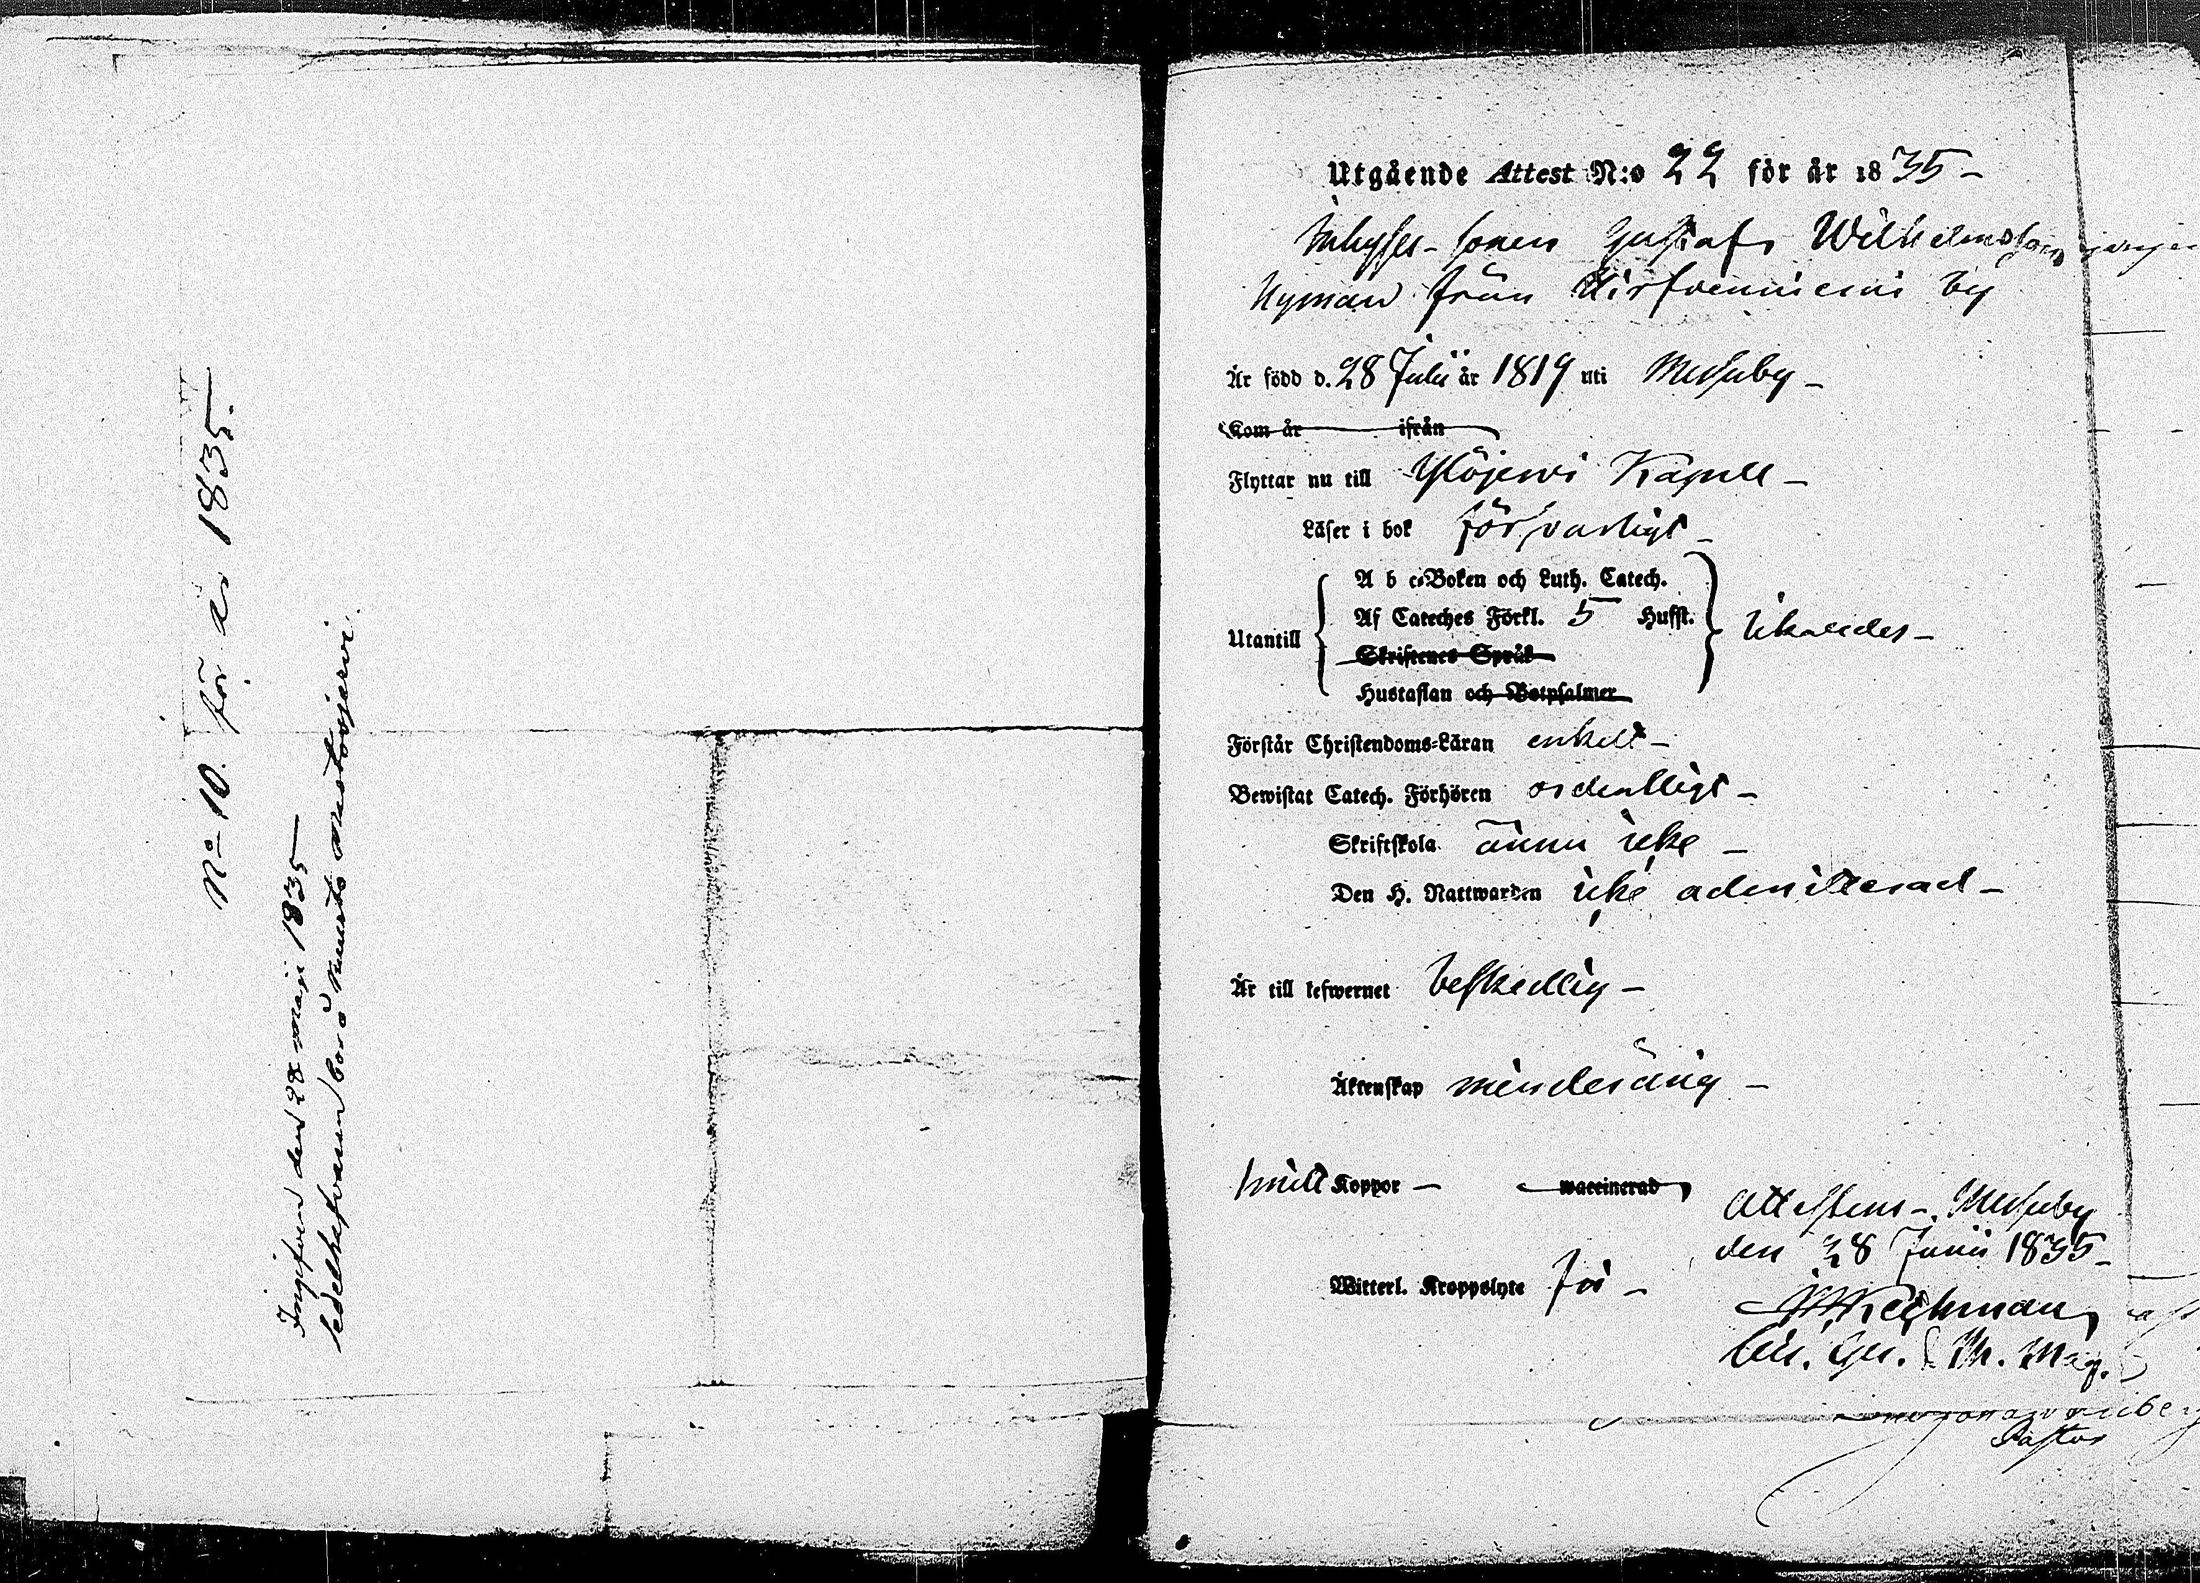 No 10. för år 1835.
Ingifven den 28 Maji 1835
Utgående Attest N:o 22 för år 1835 -
Inhyses-sonen Gustaf Wilhelmsson
Nyman från Kirfvenniemi by
Är född d. 28 Julii år 1819 uti Messuby -
Kom år ifrån
Flyttar nu till Ylöjerwi Kapell -
Läser i bok försvarligt -
A b c-Boken och Luth. Catech.
Af Cateches Förkl. 5 Hufst.
Utantill
likaledes -
Skriftenes Språk
Hustaflan och Botpsalmer
Förstår Christendoms-Läran enkelt -
Bewistat Catech. Förhören ordentligt -
Skriftskola ännu icke -
Den H. Nattwarden icke admitterad -
Är till lefwernet beskedlig -
Äktenskap minderårig -
haft Koppor - waccinerad
Attesteras - Messuby
den 28 Junii 1835 -
Witterl. Kroppslyte fri -
Pastor